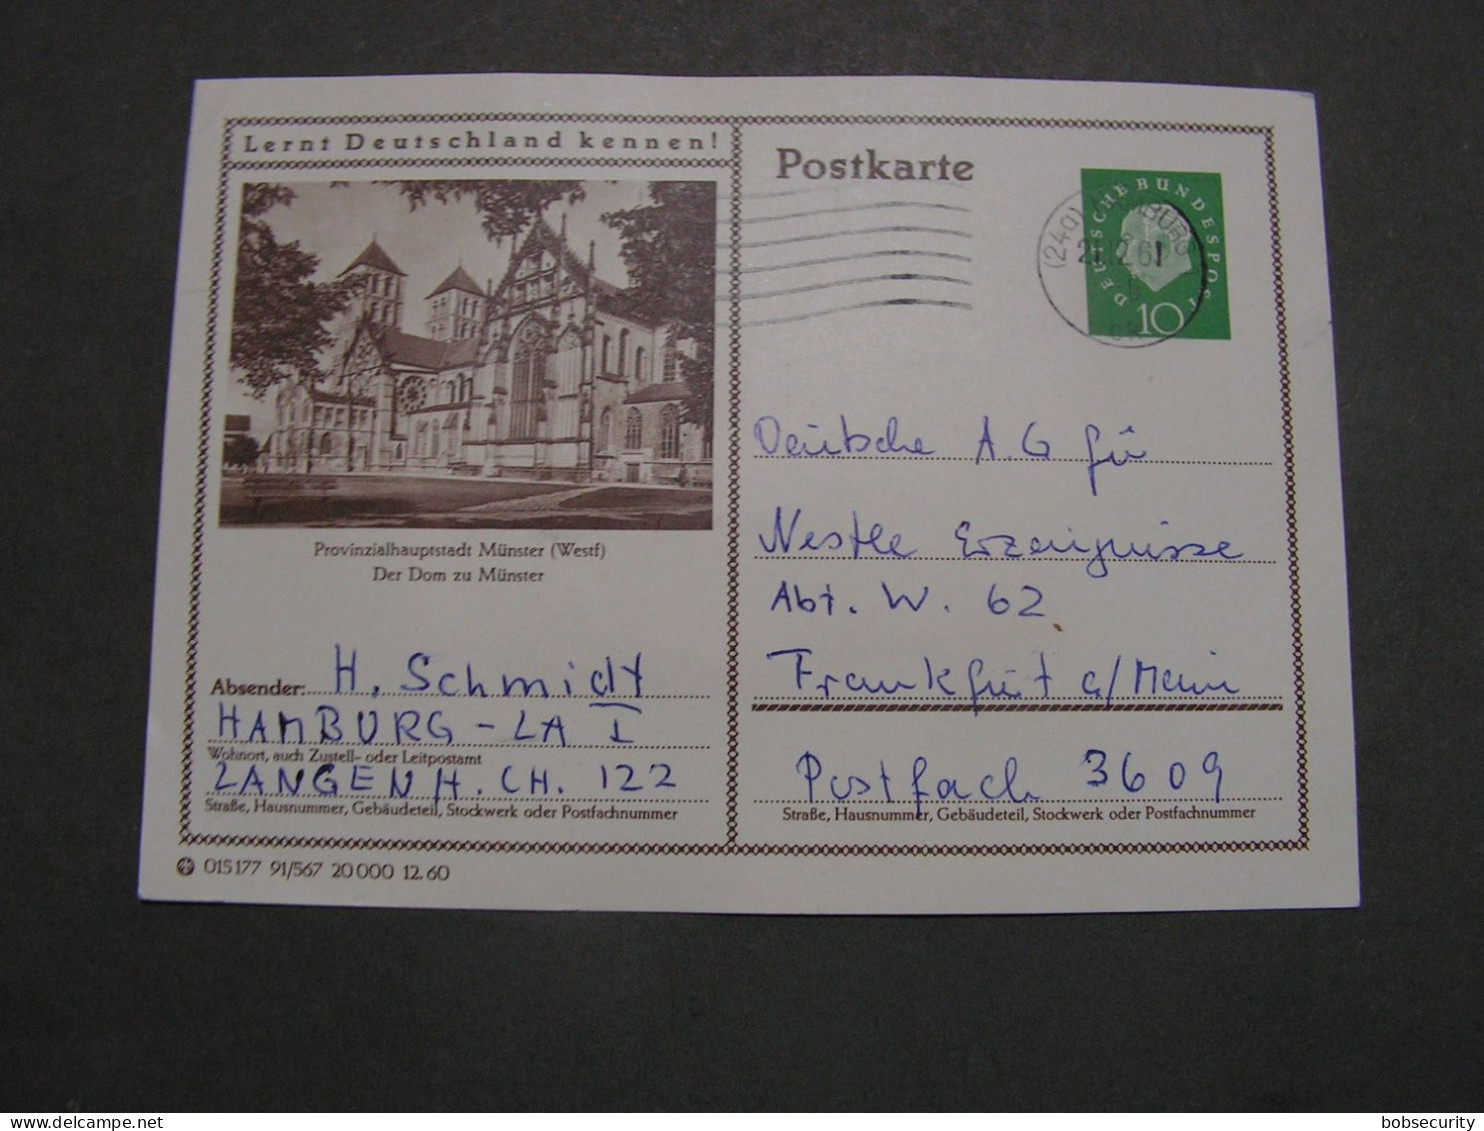 Lernt Deutschland kennen!
Provinzialhauptstadt Münster (Westf)
Der Dom zu Münster
Absender: H. Schmidt
HAMBURG - LA 1
Wohnort, auch Zustell- oder Leitpostamt
LANGENH. CH. 122
Straße, Hausnummer, Gebäudeteil, Stockwerk oder Postfachnummer
015177 91/567 20 000 12.60
Postkarte
DEUTSCHE BUNDESPOST
10
(24a) HAMBURG
21.12.61
Deutsche A.G für
Nestle Erzeugnisse
Abt. W. 62
Frankfurt a/Main
Postfach 3609
Straße, Hausnummer, Gebäudeteil, Stockwerk oder Postfachnummer
bobsecurity